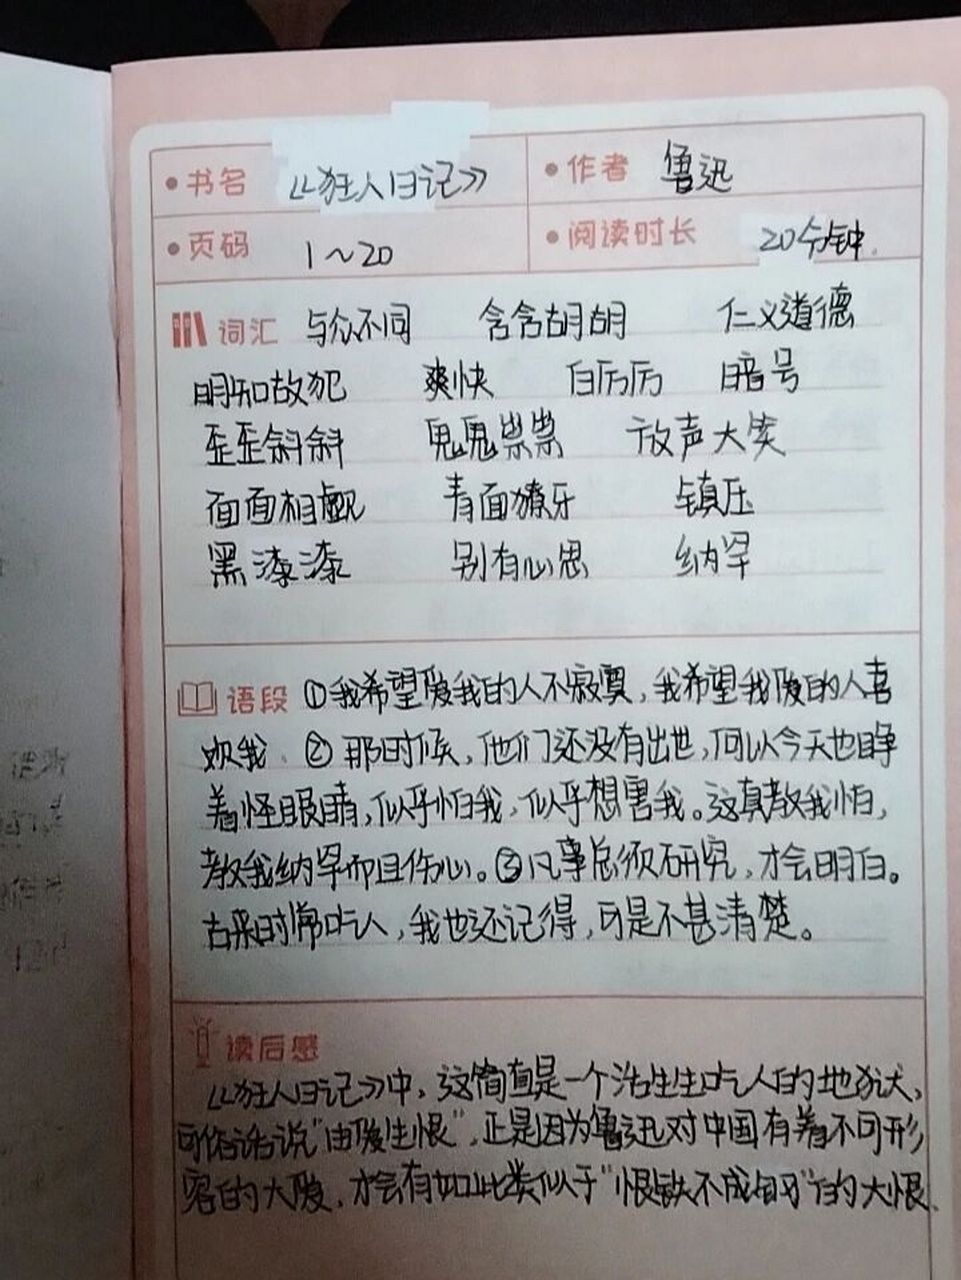 书名 《狂人日记》 作者 鲁迅
页码 1～20 阅读时长 20分钟.
词汇 与众不同 含含胡胡 仁义道德
明知故犯 爽快 白厉厉 暗号
歪歪斜斜 鬼鬼祟祟 放声大笑
面面相觑 青面獠牙 镇压
黑漆漆 别有心思 纳罕
语段 ①我希望爱我的人不寂寞,我希望我爱的人喜
欢我、②那时候,他们还没有出世,何以今天也睁
着怪眼睛,似乎怕我,似乎想害我。这真教我怕,
教我纳罕而且伤心。③凡事总须研究,才会明白。
古来时常吃人,我也还记得,可是不甚清楚。
读后感
《狂人日记》中,这简直是一个活生生吃人的地狱,
可俗话说"由爱生恨",正是因为鲁迅对中国有着不可形
容的大爱,才会有如此类似于"恨铁不成钢"的大恨、